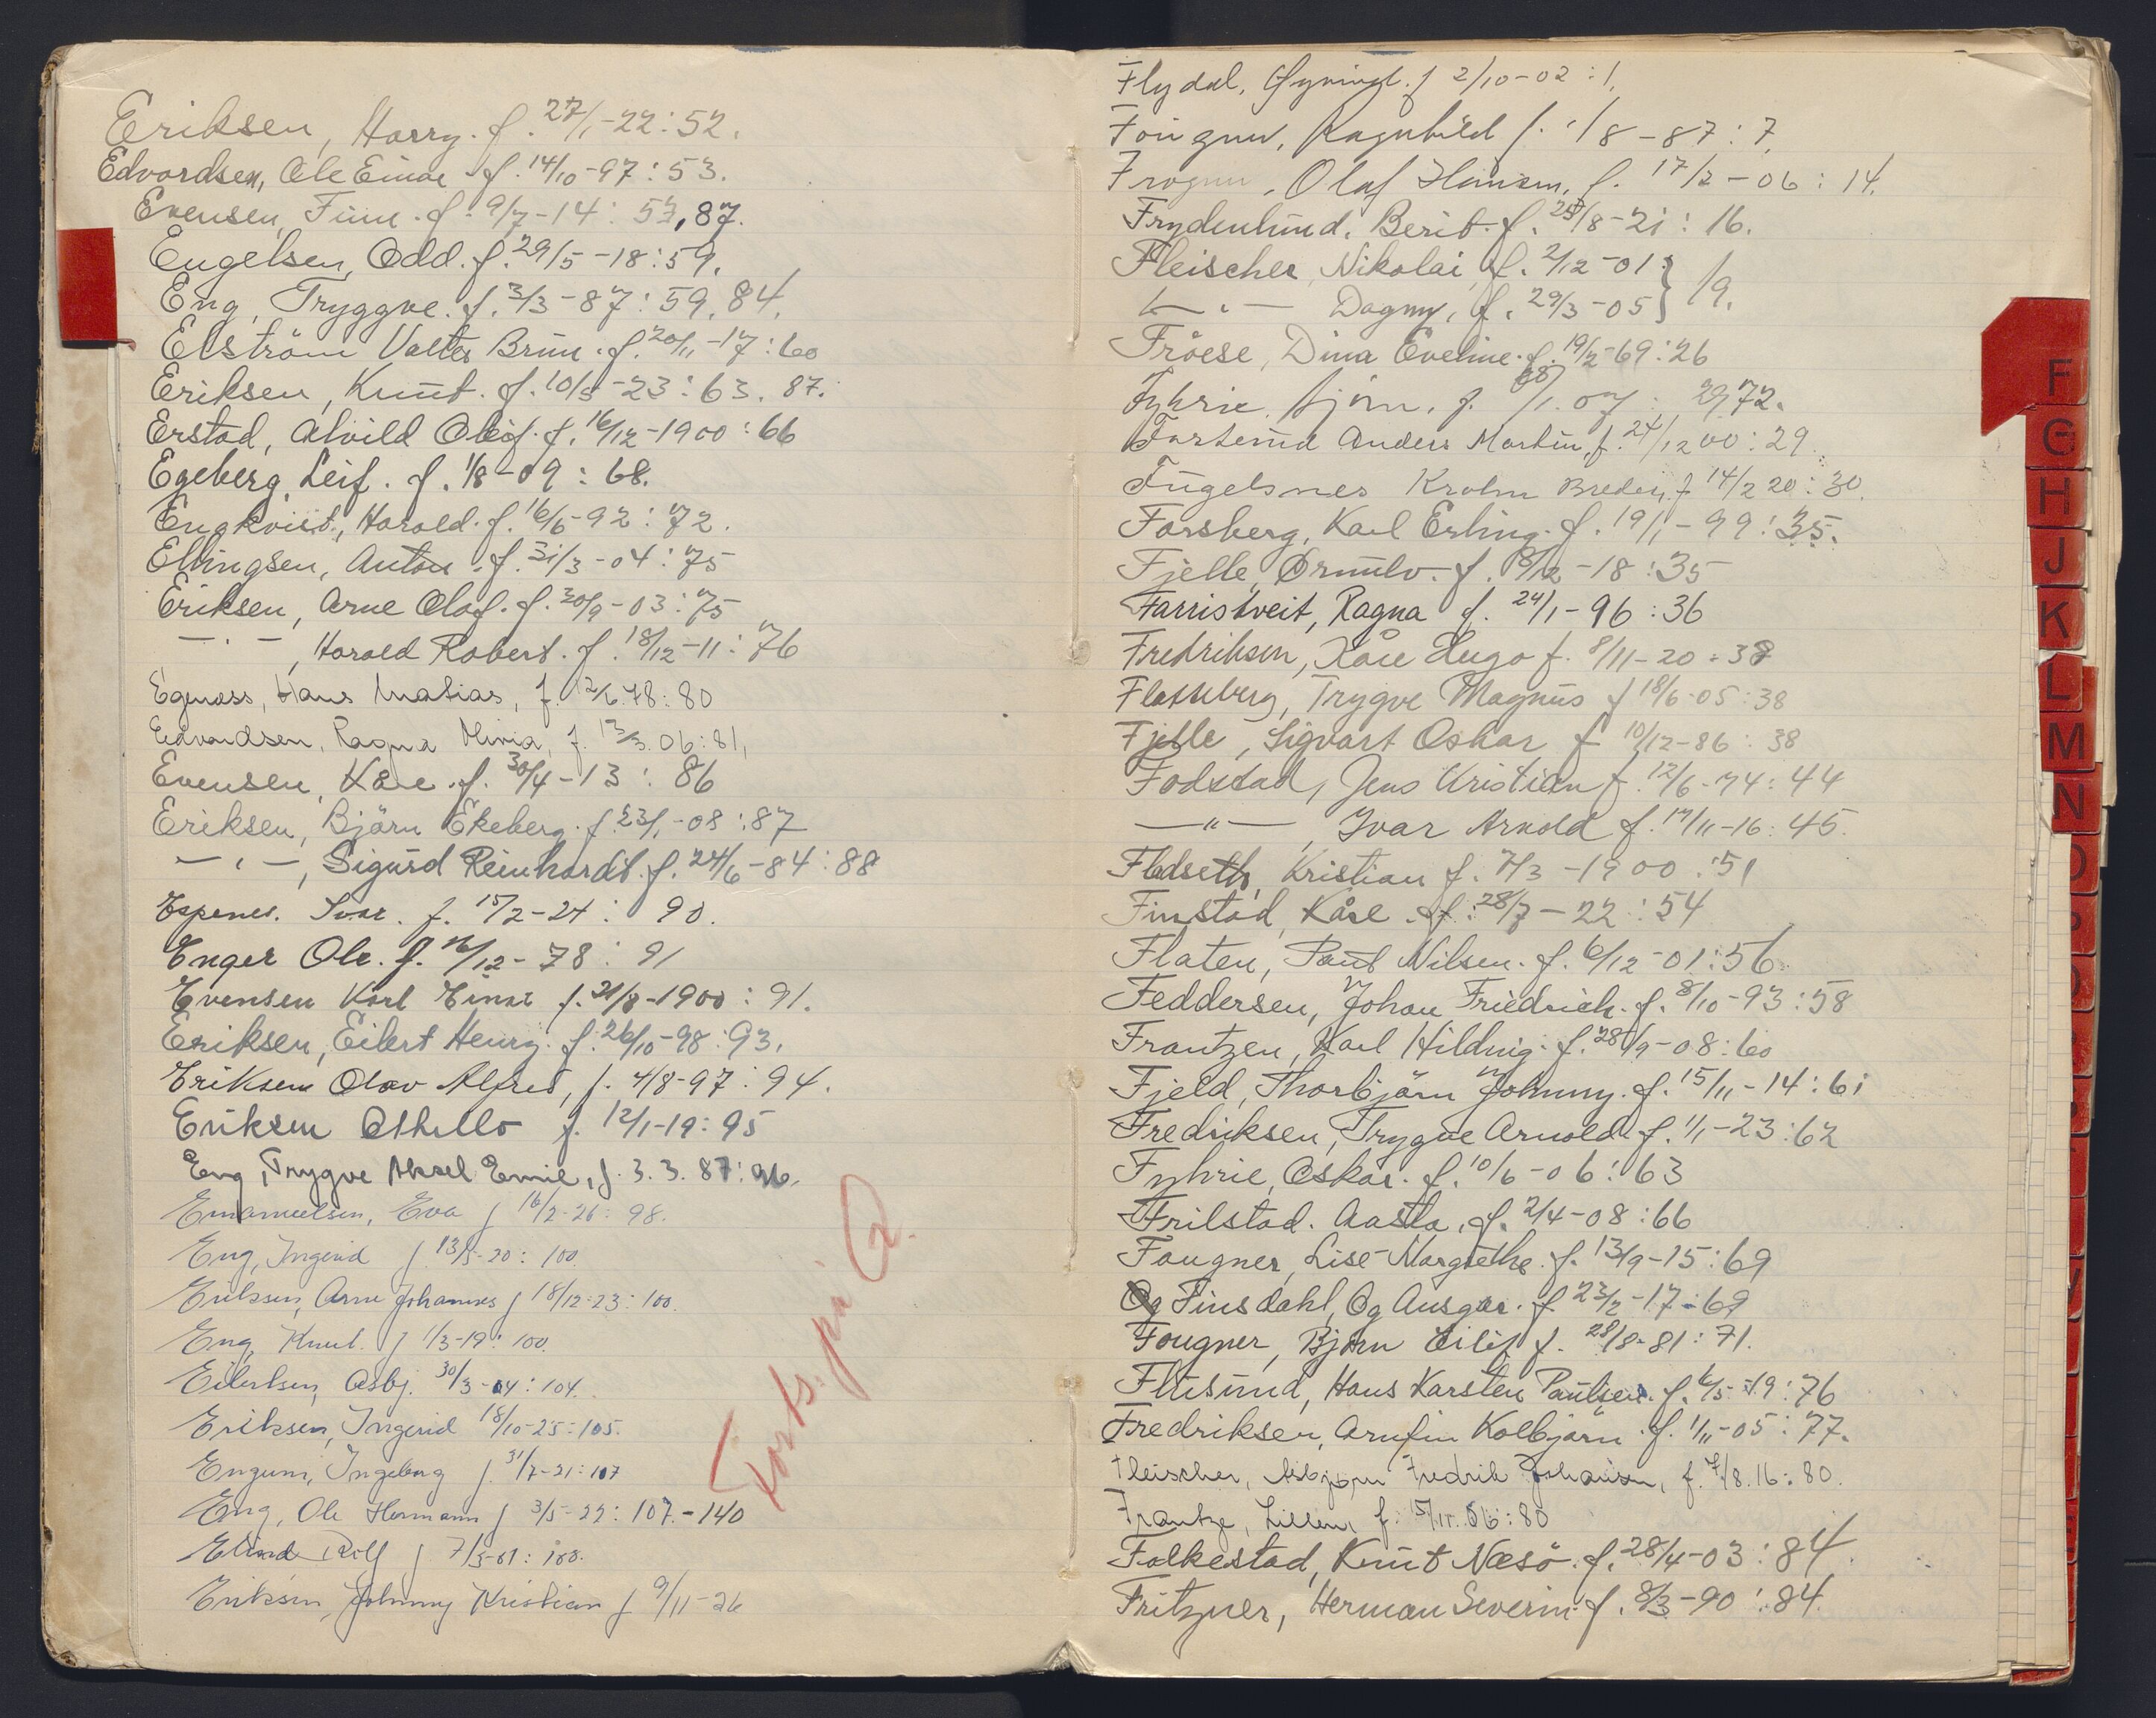 Eriksen, Harry. f. 27/1-22: 52.
Edvardsen, Ole Einar f. 14/10-97: 53.
Evensen, Finn. f. 9/7-14: 57, 87.
Engelsen, Odd. f. 29/5-18: 59.
Eng, Tryggve. f. 3/3-87: 59, 84.
Elström Valter Brun. f. 20/11-17: 60
Eriksen, Knut. f. 10/5-23: 63. 87.
Erstad, Alvild Olej. f. 16/12-1900: 66
Egeberg, Leif. f. 1/8-09: 68.
Engkvist, Harald. f. 16/6-92: 72.
Ellingsen, Anton. f. 31/3-04: 75
Eriksen, Arne Olaf. f. 30/9-03: 75
— · —, Harald Robert. f. 18/12-11: 76
Egenæss, Hans Matias, f. 12/6.78: 80
Edvardsen, Ragna Mivia, f. 13/3.06: 81,
Evensen, Kåre. f. 30/4-13: 86
Eriksen, Björn Ekeberg. f. 23/1-08: 87
— · —, Sigurd Reinhardt. f. 24/6-84: 88
Espenes. Ivar. f. 15/2-24: 90.
Enger Ole. f. 16/12-78: 91
Evensen Karl Einar f. 21/8-1900: 91.
Eriksen, Eilert Henry. f. 26/10-98: 93.
Eriksen Olav Alfred, f. 4/8-97: 94.
Eriksen Othello f. 12/1-19: 95
Eng, Trygve Aksel Emil, f. 3.3.87: 96.
Emanuelsen, Eva f 16/2-26: 98.
Eng, Ingerid f. 13/5-20: 100.
Eriksen, Arne Johannes f 18/12-23: 100.
Eng, Knut. f 1/3-19: 100.
Eilertsen, Asbj. 30/3-04: 104.
Eriksen, Ingerid 18/10-25: 105.
Engum, Ingeborg f. 31/7-21: 107
Eng, Ole Hermann f 3/5-22: 107. - 140
Elind Rolf f 7/3-01: 108.
Eriksen, Johnny Kristian f 9/11-26
Forts. på Q.
Flydal, f 2/10-02: 1.
Fougner, Ragnhild f. 1/8-87: 7.
Frogner, Olaf Hansen, f. 17/2-06: 14.
Frydenlund, Berit. f. 25/8-21: 16.
Fleischer, Nikolai, f. 2/12-01 } 19.
— · — Dagny, f. 29/3-05
Fröese, Dina Eveline. f. 19/2-69: 26
Fyhrie, Bjørn. f. 8/1.07: 29, 72.
Fartemd Anders Martin, f. 24/12 00: 29
Fugelsnes Krohn Breder, f 14/2 20: 30.
Forsberg, Karl Erling. f. 19/1-99: 35.
Fjelle, Ørnulv. f. 18/12-18: 35
Farristveit, Ragna f. 24/1-96: 36
Fredriksen, Kåre Hugo f. 8/11-20: 38
Flatteberg, Trygve Magnus f 18/6-05: 38
Fjelle, Sigvart Oskar f 10/12-86: 38
Fodstad, Jens Kristian f. 12/6-74: 44
— " —, Ivar Arnold f. 17/11-16: 45.
Flodseth, Kristian f. 7/3-1900: 51
Finstad, Kåre. f. 28/7-22: 54
Flaten, Paul Nilsen. f. 6/12-01: 56
Feddersen, Johan Friedrich. f. 8/10-93: 58
Frantzen, Karl Hilding. f. 28/9-08: 60
Fjeld, Thorbjörn Johnny. f. 15/11-14: 61
Fredriksen, Trygve Arnold f. 1/1-23: 62
Fyhrie, Oskar. f. 10/6-06: 63
Frilstad. Aasta, f. 2/4-08: 66
Fougner, Lise-Margrethe. f. 13/9-15: 69
Finsdahl, Og Ansgar. f. 23/2-17: 69
Fougner, Bjørn Eilif f. 28/8-81: 71.
Flusund, Hans Karsten Paulsen. f. 6/5-19: 76
Fredriksen, Arnfin Kolbjørn. f. 1/11-05: 77.
Fleischer, Asbjørn Fredrik Johansen, f. 7/8.16: 80.
Frantze, Lillem, f. 15/11.06: 80
Falkestad, Knut Næsö. f. 28/4-03: 84.
Fritzner, Herman Severin. f. 8/3-90: 84.
F
G
H
J
K
L
M
N